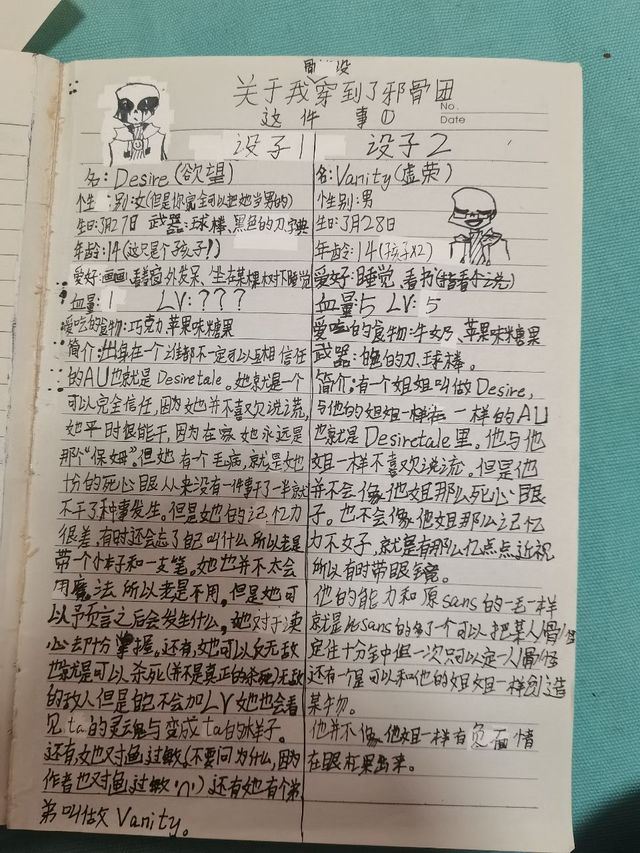 骨 设
关于我穿到了邪骨团
这件事①
No.
Date
设子1
名:Desire(欲望)
个性:别:女(但是你完全可以把她当男的)
生日:3月27日 武器:球棒、黑色的刀、字典
年龄:14(这只是个孩子!)
爱好:画画、看着窗外发呆、坐在某棵树下睡觉
血量:1 LV:???
爱吃的食物:巧克力、苹果味糖果
简介:出身在一个谁都不一定可以互相信任
的AU也就是Desiretale。她就是一个
可以完全信任,因为她并不喜欢说谎,
她平时很能干,因为在家她永远是
那个“保姆”。但她有个毛病,就是她
十分的死心眼从来没有一件事干了一半就
不干了种事发生。但是她的记忆力
很差,有时还会忘了自己叫什么所以老是
带一个小本子和一支笔。她也并不太会
用魔法所以老是不用。但是她可
以予页言之后会发生什么,她对于读
心术十分掌握。还有,她可以反无敌
也就是可以杀死(并不是真正的杀死)无敌
的敌人但是自己不会加LV她也会看
见ta的灵魂与变成ta的样子。
还有,她对鱼过敏(不要问为什么,因为
作者也对鱼过敏) 还有她有个弟
弟叫做Vanity。
设子2
名:Vanity(虚荣)
个性别:男
生日:3月28日
年龄:14(孩子X2)
爱好:睡觉、看书(指看小说)
血量:5 LV:5
爱吃的食物:牛奶、苹果味糖果
武器:白色的刀、球棒。
简介:有一个姐姐叫做Desire,
与他的姐姐一样在一样的AU
也就是Desiretale里。他与他
姐一样不喜欢说谎。但是他
并不会像他姐那么死心眼
子。也不会像他姐那么记忆
力不好,就是有那么亿点点近视
所以有时带眼镜。
他的能力和原sans的一毛一样
就是比sans的多了一个可以把某人/骨/怪
定住十分钟但一次只可以定一人/骨/怪
还有一个是可以和他的姐姐一样创造
某物。
他并不像他姐一样有负面情
在眼眶累出来。